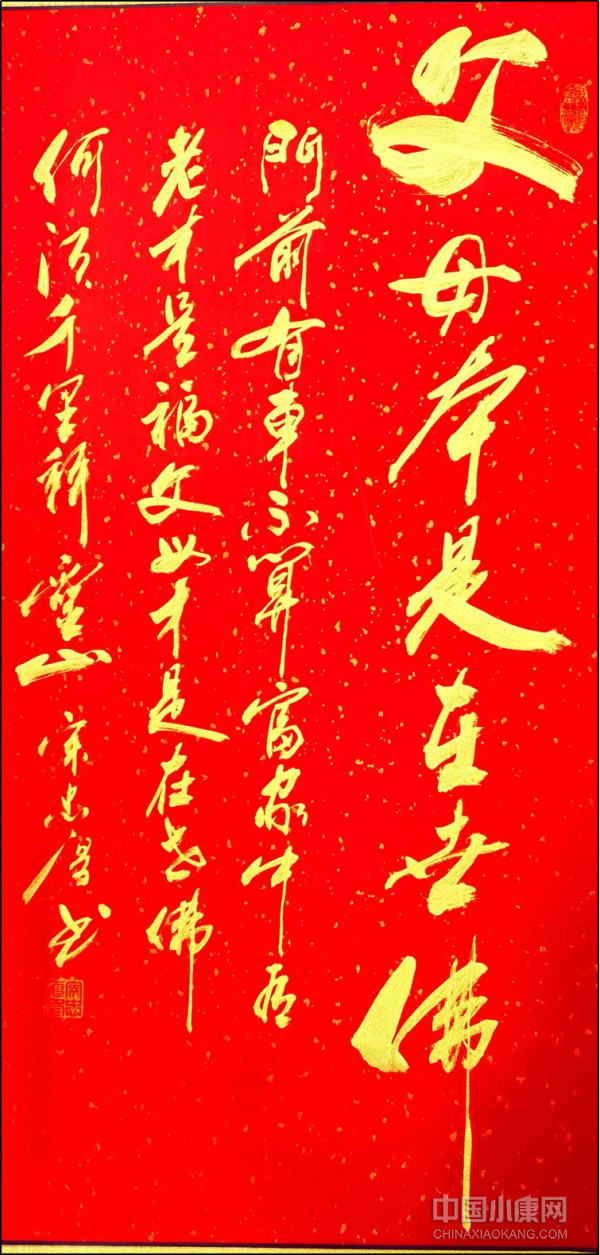 父母本是在世佛
門前有車不算富家中有
老才是福父母才是在世佛
何須千里拜靈山 宋忠厚书
中国小康网
CHINAXIAOKANG.COM